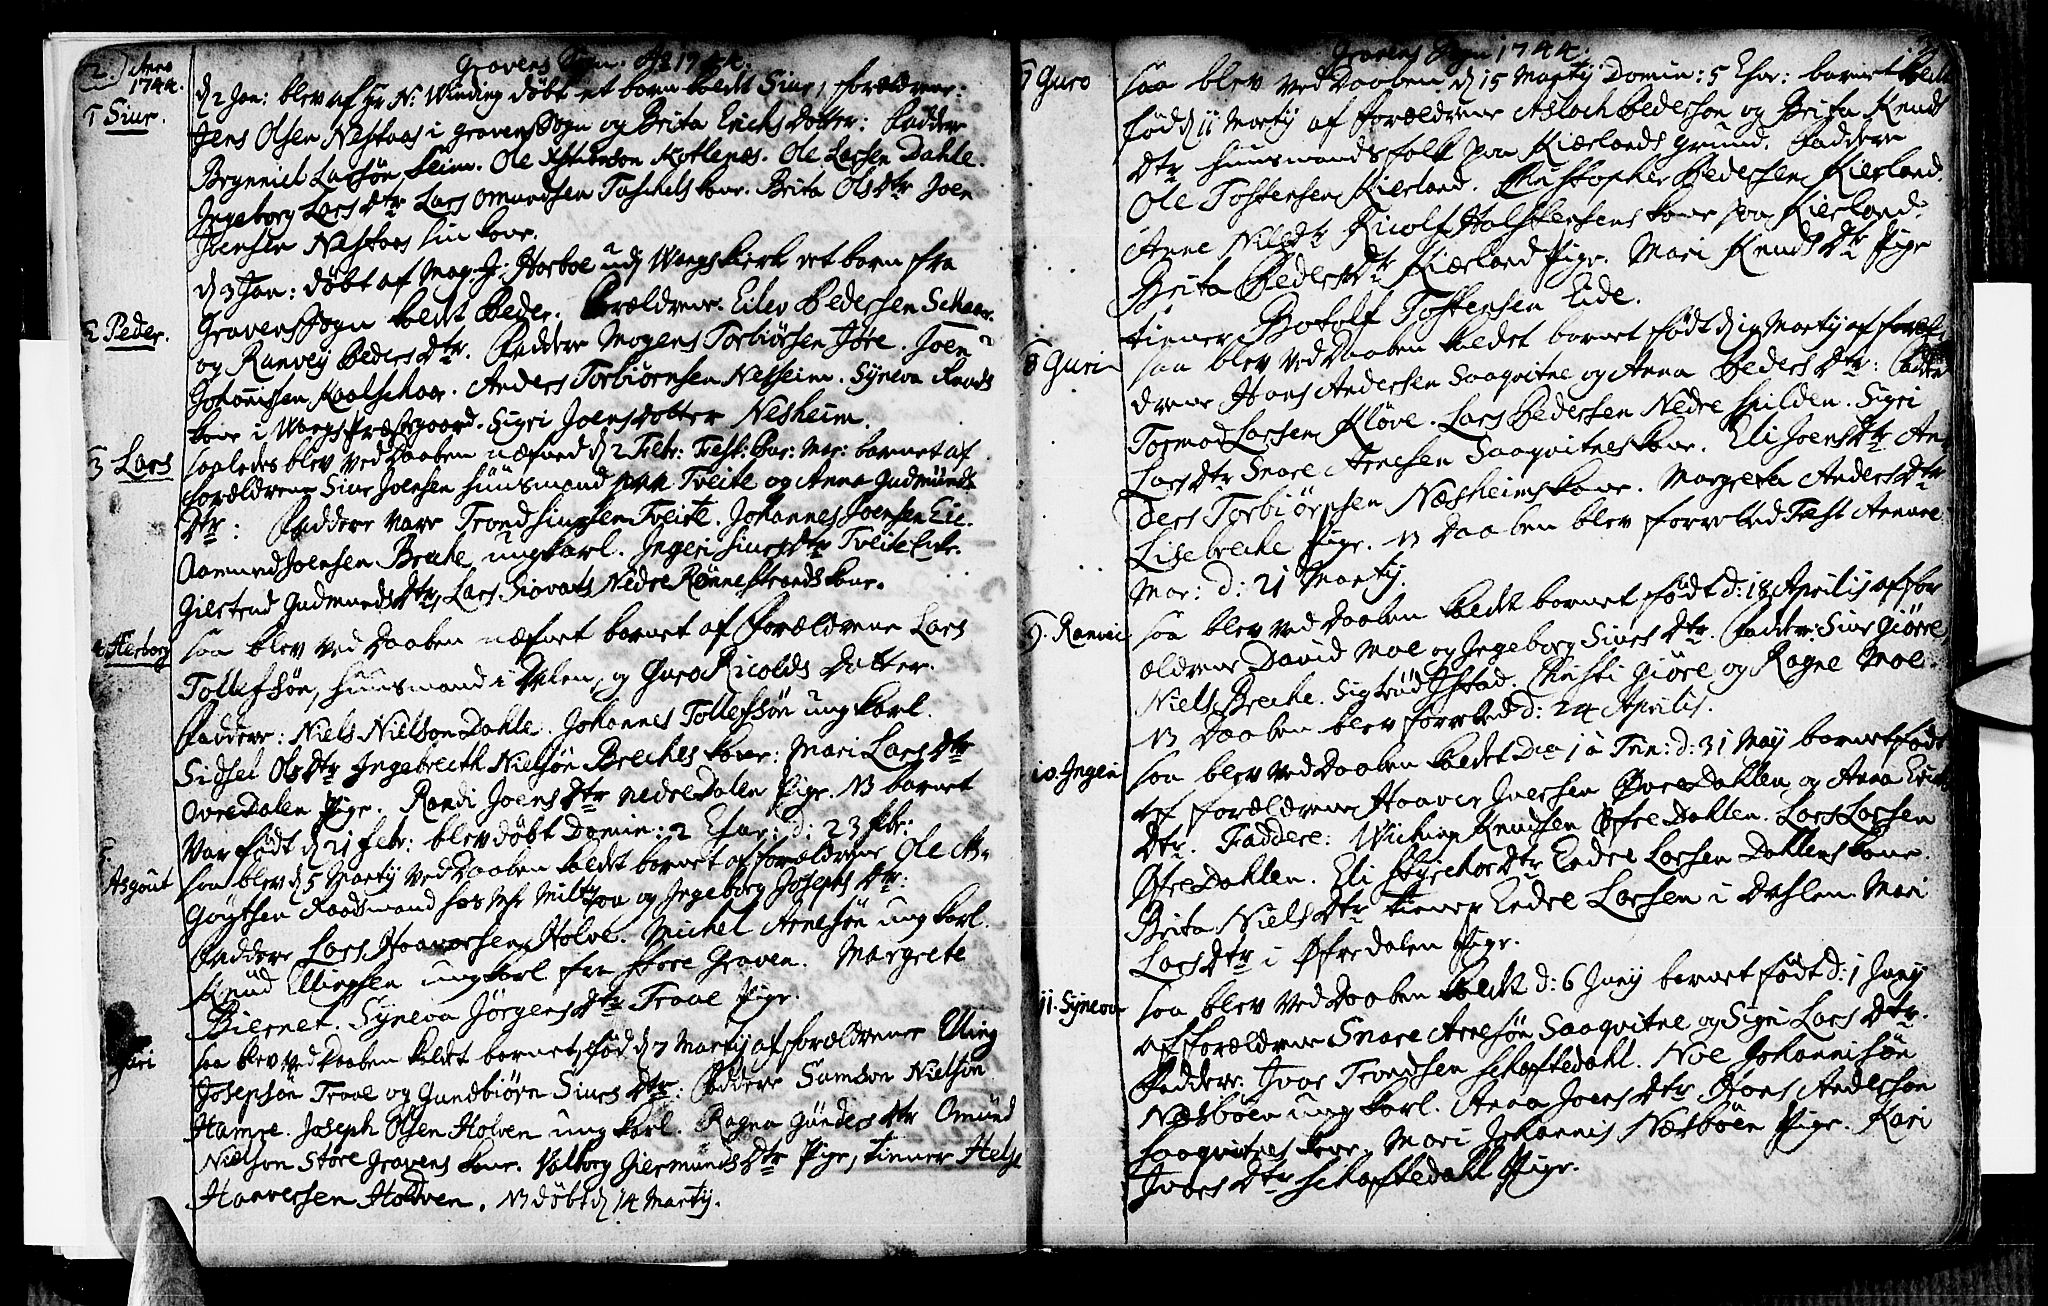 2. Anno 1744.
Gravens Sogn. Ao 1744.
1 Siur.
d 2 Jan: blev af Hr N: Winding døbt et barn kaldt Siur, forældrene:
Jens Olsen Nestaas i gravens Sogn og Brita Erichs dotter: Faddere
Brynniel Larsøn Seim. Ole Kotlenes. Ole Larsen Dahle.
Ingeborg Lars dtr Lars Omundsen Taschels kone. Brita Ols dtr Joen
Joensen Nestaas sin kone.
2 Peder.
d 3 Jan: døbt af Mag: J: Harboe udj Wangs kirke et barn fra
Gravens Sogn kaldt Peder. Forældrene: Eilev Pedersen Schaar
og Ranvey Peders dtr. Faddere Mogens Torbiørsen Jøre. Joen
Johannissen Kaalschaar. Anders Torbiørnsen Nesheim. Syneva Knuds
kone i Wangs Præstegaard. Sigri Joensdotter Nesheim.
3 Lars
saaledes blev ved Daaben nefned d 2 Febr: Fest: Pur: Mar: barnet af
forældrene Siur Joensen huusmand paa Tveite og Anna Gudmunds
Dtr: Faddere vare Trond Siursen Tveite. Johannes Joensen Eie.
Aamund Joensen Breche ungkarl. Ingeri Siurs dtr Tveite Enke.
Giertrud Gudmunds Dtr, Lars Siovats Nedre Rønnestrands kone.
4 Herborg
saa blev ved Daaben nefnet barnet af Forældrene Lars
Tollefsøn, huusmand i Dalen, og Guro Ricolds Dotter.
Faddere: Niels Nielson Dahle. Johannes Tollefsøn ungkarl.
Sidsel Ols Dtr Ingebrecth Nielsøn Breches kone: Mari Lars Dtr
Ovre Dalen Pige. Randi Joens Dtr nedre Dalen Pige. NB barnet
var født d 21 febr: blev døbt Domin: 2 Qvar: d: 23 febr:
5. Asgout
saa blev d 5 Martij ved Daaben kaldet barnet af forældrene Ole As-
goutsen Raadsmand hos Mr Miltzou og Ingeborg Josephs Dtr:
Faddere Lars Haavarsen Holve. Michel Arnesøn ungkarl.
Knud Ellingsen ungkarl fra store Graven. Margrete
Biernet. Syneva Jørgens Dtr Traae Pige.
Gäri
saa blev ved Daaben kaldet barnet, fød d 7 Martij af forældrene Elling
Josephsøn Traae og Gundbiørn Siurs Dtr: Faddere Samson Nielsøn
Hamre. Joseph Olsen Holven ungkarl. Ragna Gunders Dtr Omund
Nielson Store gravens kone. Valborg Giermunds Dtr Pige, tiener Helje
Haaversen Holven. NB døbt d 14 Martij.
Gravens Sogn 1744.
7 Guro
saa blev ved Daaben d 15 Martij Domin: 5 Qvar: barnet kaldt
fød d 11 Martij af forældrene Aslach Pederson og Brita Knuds
Dtr huusmands folk paa Kierlands grund. Faddere
Ole Tostensen Kierland. Christopher Pedersen Kierland.
Anne Nils Dtr Ricolf Halstensens kone paa Kierland.
Brita Peders Dtr Kierland Pige. Mari Knuds Dtr Pige
tiener Botolf Tostensen Eide.
8 Guri
saa blev ved Daaben kaldet barnet født d 19 Martij af foræl-
drene Hans Andersen Saaqvitne og Anna Peders Dtr: Faddere
Tormod Larsen Kløve. Lars Pedersen Nedre Spilden. Sigri
Lars Dtr Snare Arnesen Saaqvitnes kone. Eli Joens Dtr An-
ders Torbiørnsen Næsheims kone. Margreta Anders Dtr
Lisebreche Pige. NB Daaben blev forretted Fest Annunc
Mar: d: 21 Martij.
9. Ranvei
saa blev ved Daaben kaldt barnet født d: 18 Aprilis af for
ældrene David Moe og Ingeborg Siurs Dtr. Fadder: Siur Giøre
Niels Breche. Sigtrud Ystad. Christi Giøre og Ragne Moe.
NB Daaben blev forretted d: 24 Aprilis.
10. Ingeri
saa blev ved Daaben kaldet Dca 1 a Trin: d: 31 Maij barnet født
af forældrene Haaver Iversen Øvre Dahlen og Anna Erichs
Dtr. Faddere: Wiching Knudsen Øfre Dahlen. Lars Larsen
Øfre Dahlen. Eli Styrchor Dtr Endre Larsen Dahlens kone.
Brita Niels Dtr tiener Endre Larsen i Dahlen. Mari
Lars Dtr i Øfredalen Pige.
11. Syneva
saa blev ved Daaben kaldt d: 6 Junij barnet født d: 1 Junij
af forældrene Snare Arnesøn Saaqvitne og Sigri Lars Dtr.
Faddere: Ivar Trondsen Schaftedahl. Noe Johannisøn
Næsbøen ungkarl. Anna Joens Dtr Hans Anderson
Saaqvitnes kone. Mari Johannis Næsbøen Pige. Kari
Ivars Dtr Schaftedahl Pige.